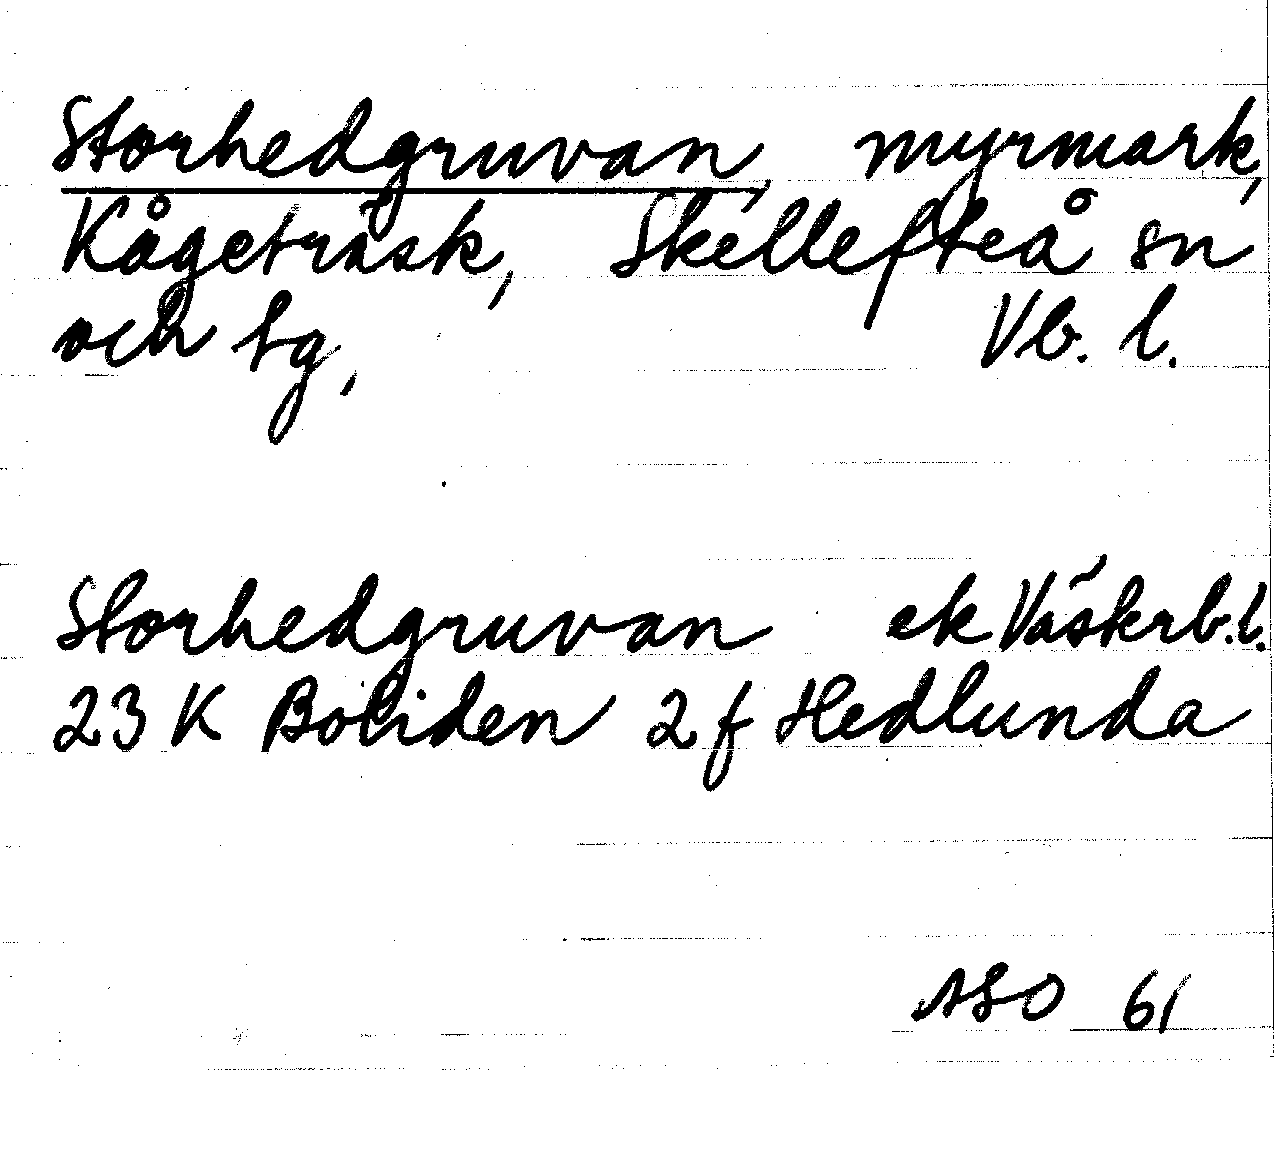 Storhedgruvan, myrmark,
Kågeträsk, Skellefteå sn
och tg, Vb. l.
Storhedgruvan ek Västerb.l.
23 K Boliden 2f Hedlunda
ASO 61